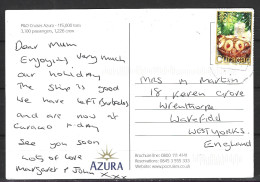 P&O Cruises Azura - 115,000 tons
3,100 passengers, 1,226 crew
Dear Mum
Enjoying very much
our holiday
The ship is good
We have left Barbados
and are now at
Curacao today
See you soon
Lots of love
Margaret + John xxx
AZURA
Curaçao
Mrs M Martin
18, Keren Grove
Wrenthorpe
Wakefield
West Yorks.
England
Brochure line:
Reservations:
Website: